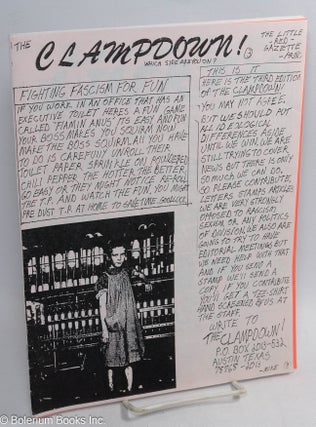 THE
CLAMPDOWN!
WHICH SIDE ARE YOU ON?
THE LITTLE
-RED-
GAZETTE
FIGHTING FASCISM FOR FUN
IF YOU WORK IN AN OFFICE THAT HAS AN
EXECUTIVE TOILET HERES A FUN GAME
CALLED FLAMIN ANUS ITS EASY AND FUN
YOUR BOSS MAKES YOU SQUIRM NOW
MAKE THE BOSS SQUIRM. ALL YOU HAVE
TO DO IS CAREFULLY UNROLL THEIR
TOILET PAPER SPRINKLE ON POWDERED
CHILI PEPPER THE HOTTER THE BETTER,
GO EASY OR THEY MIGHT NOTICE, REROLL
THE T.P. AND WATCH THE FUN. YOU MIGHT
PRE DUST T.P. AT HOME TO SAVE TIME. GOODLUCK
THIS IS IT
HERE IS THE THIRD EDITION
OF THE CLAMPDOWN
YOU MAY NOT AGREE,
BUT WE SHOULD PUT
ALL IDEOLOGICAL
DIFFERENCES ASIDE
UNTIL WE WIN. WE ARE
STILL TRYING TO COVER
NEWS BUT THERE IS ONLY
SO MUCH WE CAN DO,
SO PLEASE CONTRIBUTE,
LETTERS STAMPS ARTICLES
WE ARE VERY STRONGLY
OPPOSED TO RACISM,
SEXISM OR ANY POLITICS
OF DIVISION. WE ALSO ARE
GOING TO TRY TO HAVE
EDITORIAL MEETINGS BUT
WE NEED HELP WITH THAT
AND IF YOU SEND A
STAMP WE'LL SEND A
COPY, IF YOU CONTRIBUTE
YOU'LL GET A TEE-SHIRT
HAND SCREENED BY US AT
THE STAFF
WRITE TO
THE CLAMPDOWN!
P.O. BOX 2013-532
AUSTIN TEXAS
78768-2013
-MIKE
© Bolerium Books Inc.